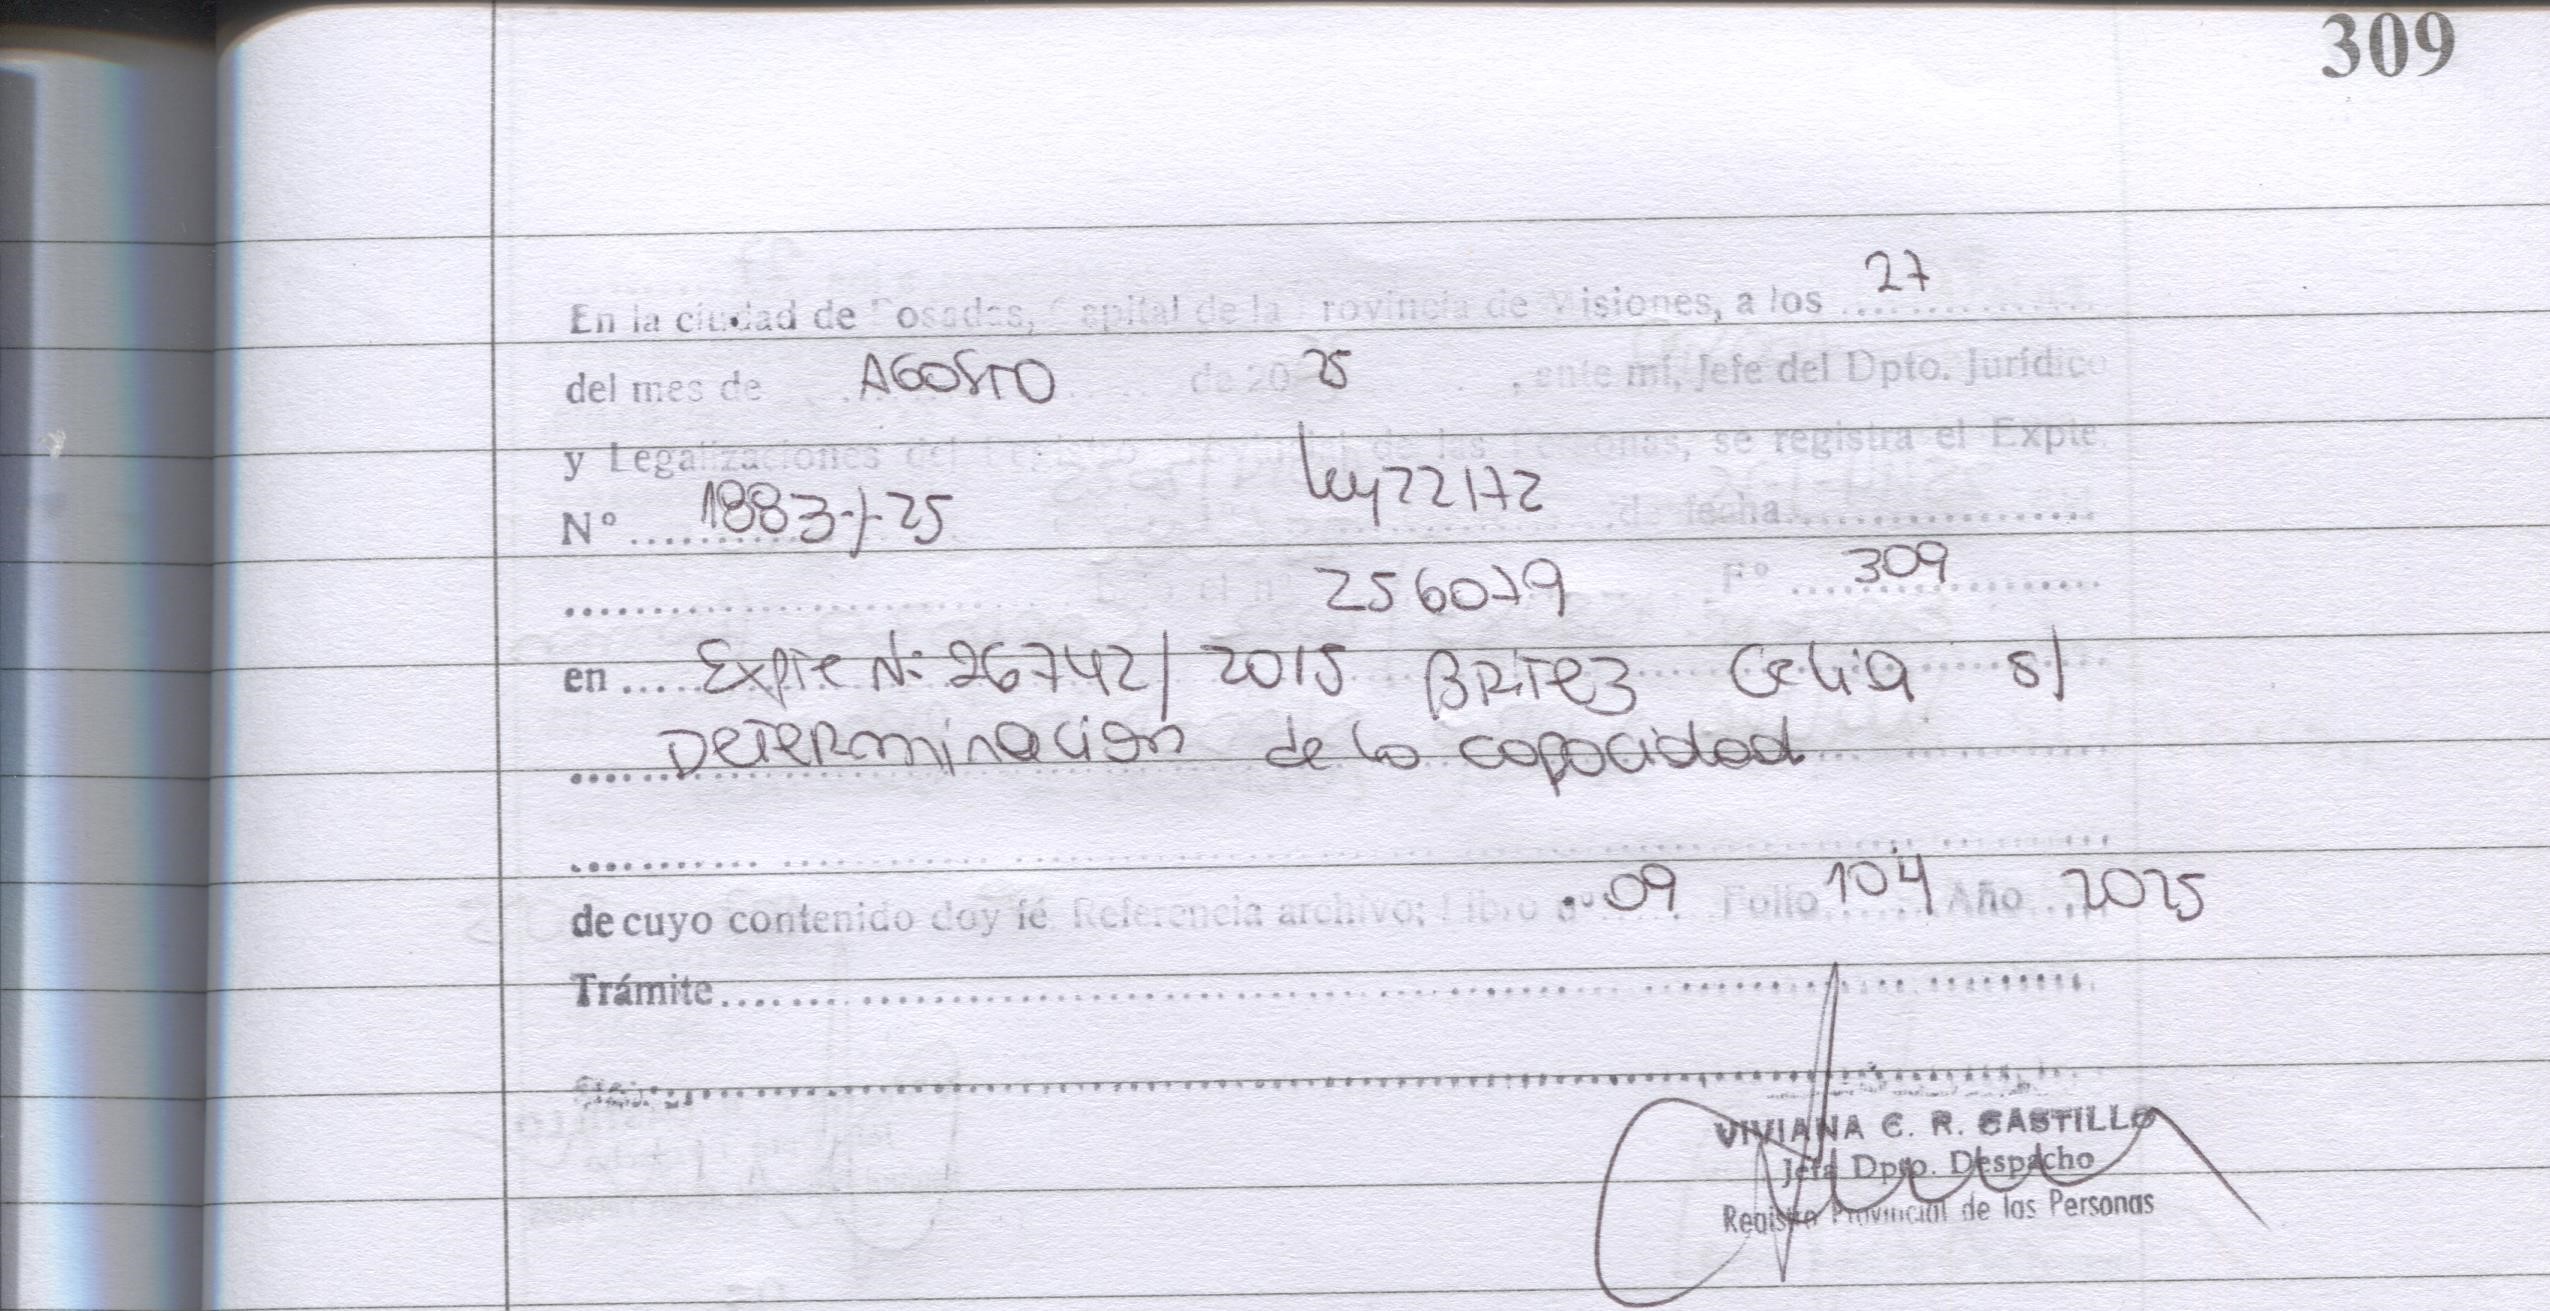 309
En la ciudad de Posadas, Capital de la Provincia de Misiones, a los 27
del mes de AGOSTO de 20 25, ante mí, Jefe del Dpto. Jurídico
y Legalizaciones del Registro Provincial de las Personas, se registra el Expte.
Nº 1883-/-25 Ley 22172 de fecha
bajo el nº 256079 Fº 309
en Expte N: 26742/2015 BRITEZ Celia s/
DETERMINACION de la capacidad
de cuyo contenido doy fé Referencia archivo: Libro nº 09 Folio 104 Año 2025
Trámite
VIVIANA C. R. CASTILLO
Jefa Dpto. Despacho
Registro Provincial de las Personas